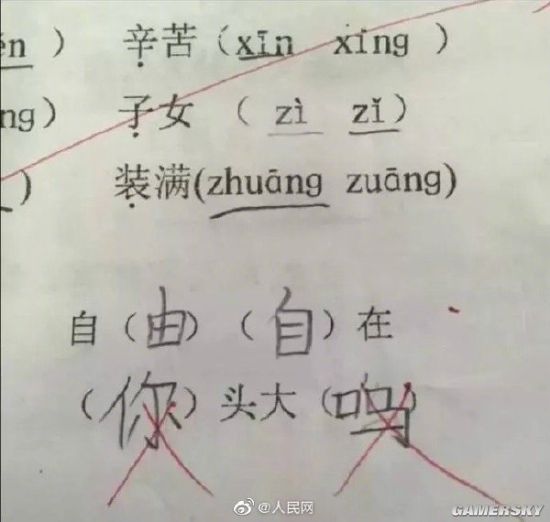 ěn ) 辛苦 (xīn xíng )
ng) 子女 ( zì zǐ )
) 装满(zhuāng zuāng)
自 (由) (自) 在
(你) 头大 (吗)
@人民网
GAMERSKY